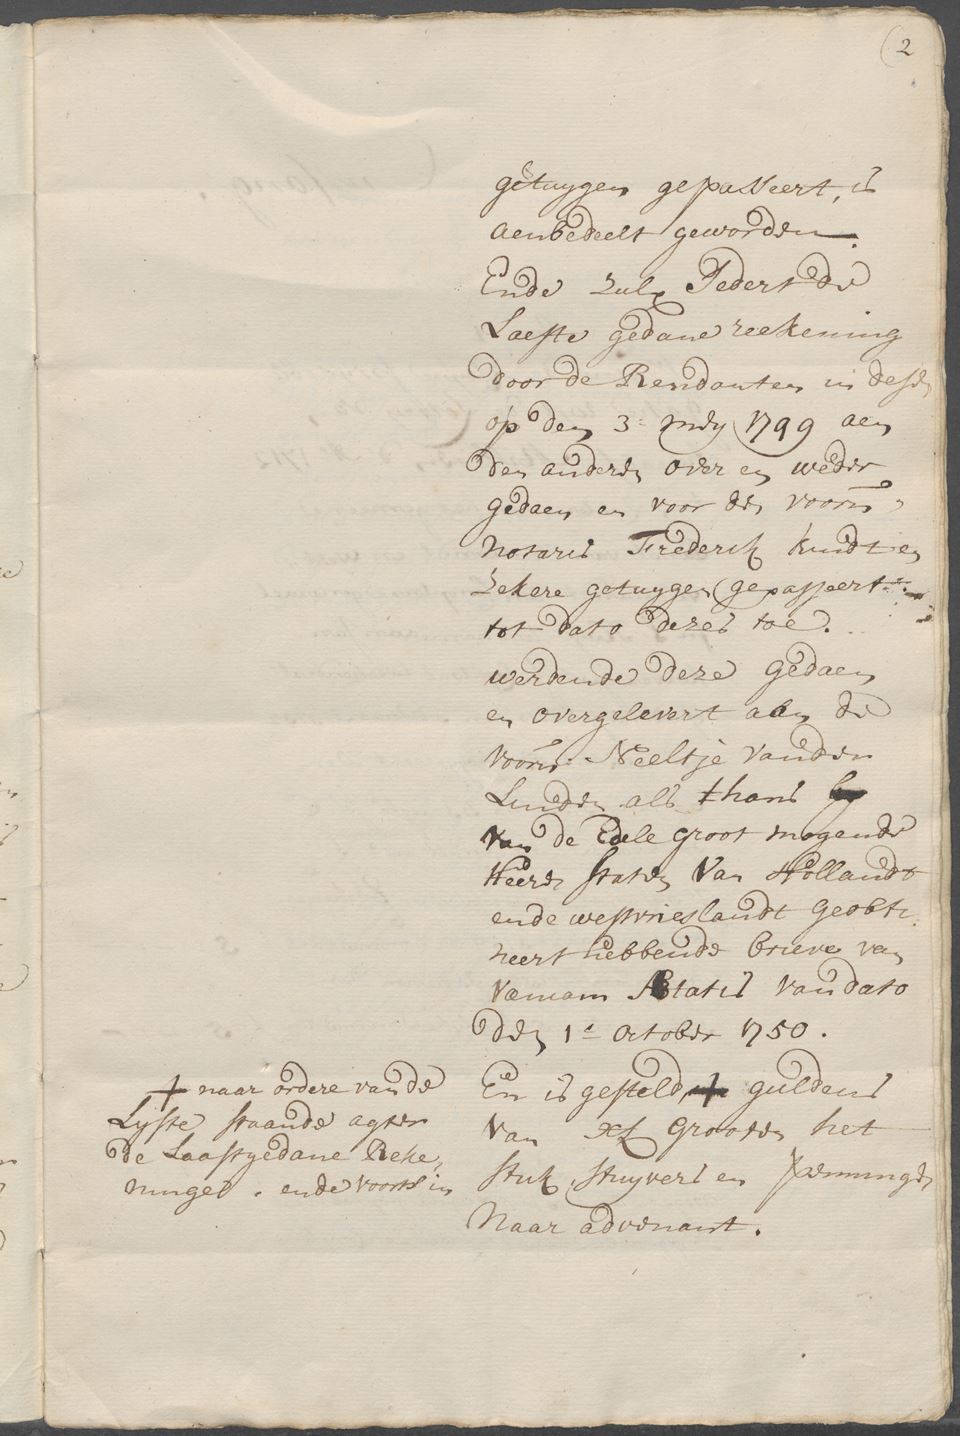 2
getuygen gepasseert, is
aenbedeelt geworden.
Ende zulx Tedert de
Laeste gedane reekening
door de Rendanten in desen
op den 3e: Mey 1749 aen
den anderen over en weder
gedaen en voor den voorn
Notaris Frederik Kundt en
Zekere getuygen gepasseert
tot dato dezes toe.
werdende deze gedaen
en overgelevert aen de
voorn: Neeltje vanden
Lunden als thans
van de Edele Groot mogende
Heeren Staten van Hollandt
ende westvrieslandt geobti
neert hebbende brieve van
Veniam Ætatis van dato
den 1e October 1750.
En is gesteld + guldens
van XL Grooten het
stuk, stuyvers en penningen
Naar advenant.
+ naar ordere van de
Lyste staande agter
de Laastgedane Reke
ninge. ende voorts in